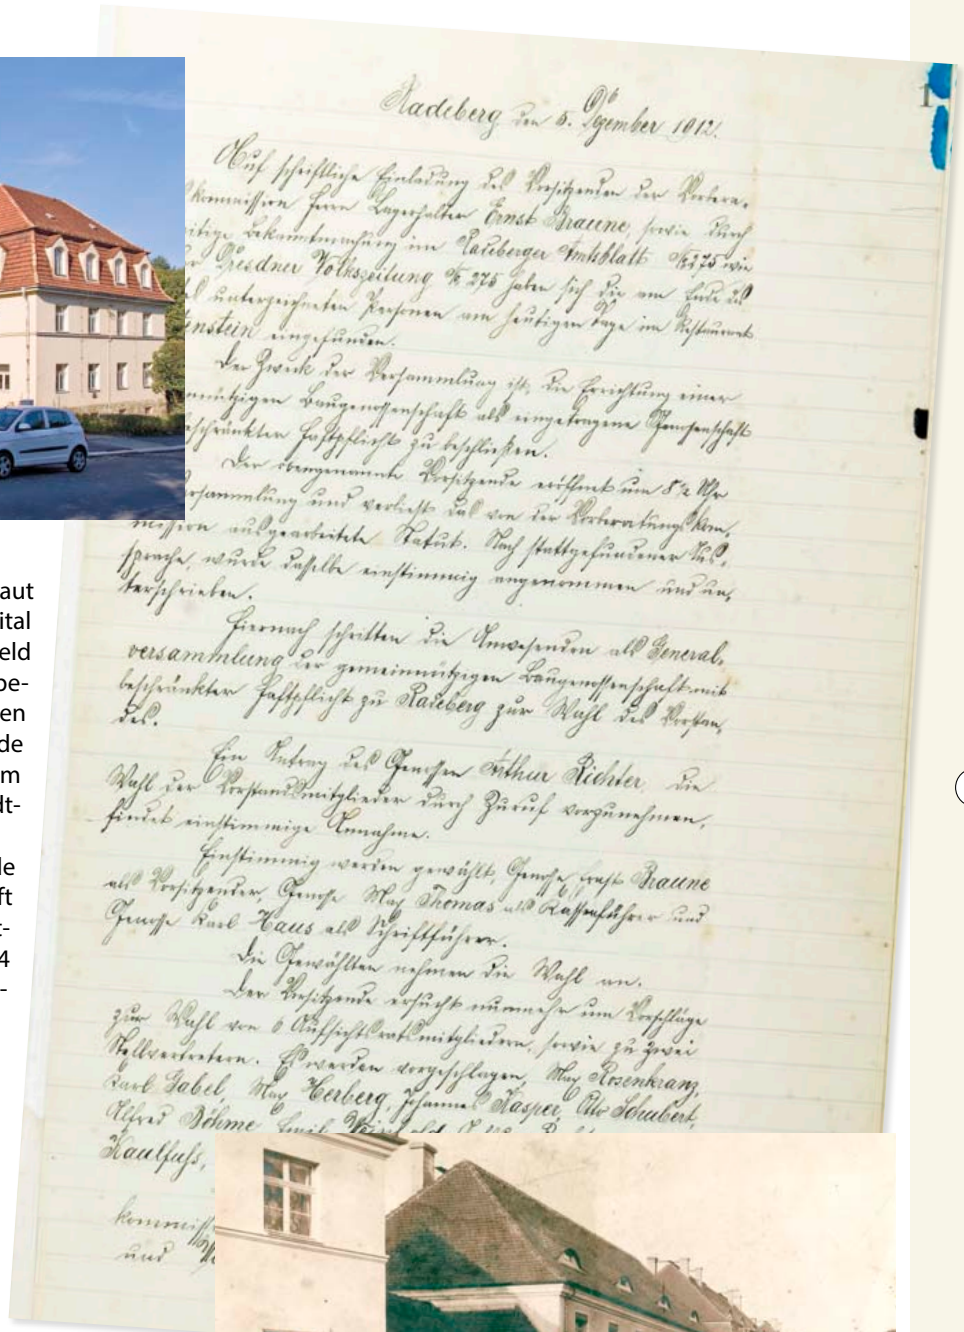 Radeberg den 5. Dezember 1912.
1
Auf schriftliche Einladung des Vorsitzenden der Vorbera-
kommission Herrn Lagerhalter Ernst Braune, sowie durch
itige Bekanntmachung im Radeberger Amtsblatt № 275 wie
Dresdner Volkszeitung № 275 haben sich die am Ende des
unterzeichneten Personen am heutigen Tage im Restaurant
enstein eingefunden.
Der Zweck der Versammlung ist, die Errichtung einer
nnützigen Baugenossenschaft als eingetragene Genossenschaft
schränkter Haftpflicht zu beschließen.
Der obengenannte Vorsitzende eröffnet um 8½ Uhr
rsammlung und verliest das von der Vorberatungskom-
mission ausgearbeitete Statut. Nach stattgefundener Aus-
sprache, wurde dasselbe einstimmig angenommen und un-
terschrieben.
Hiernach schritten die Anwesenden als General-
versammlung der gemeinnützigen Baugenossenschaft mit
beschränkter Haftpflicht zu Radeberg zur Wahl des Vorstan-
des.
Ein Antrag des Genossen Arthur Richter, die
Wahl der Vorstandsmitglieder durch Zuruf vorzunehmen,
findet einstimmige Annahme.
Einstimmig werden gewählt, Genosse Ernst Braune
als Vorsitzender, Genosse Max Thomas als Kassenführer und
Genosse Karl Haus als Schriftführer.
Die Gewählten nehmen die Wahl an.
Der Vorsitzende ersucht nunmehr um Vorschläge
zur Wahl von 6 Aufsichtsratsmitgliedern, sowie zu zwei
Stellvertretern. Es werden vorgeschlagen, Max Rosenkranz,
Karl Gabel, Max Herberg, Johannes Kasper, Otto Schubert,
Alfred Böhme, Emil
Kaulfuß,
kommiss
und
aut
ital
eld
be-
en
de
m
dt-
le
ft
t-
4
-